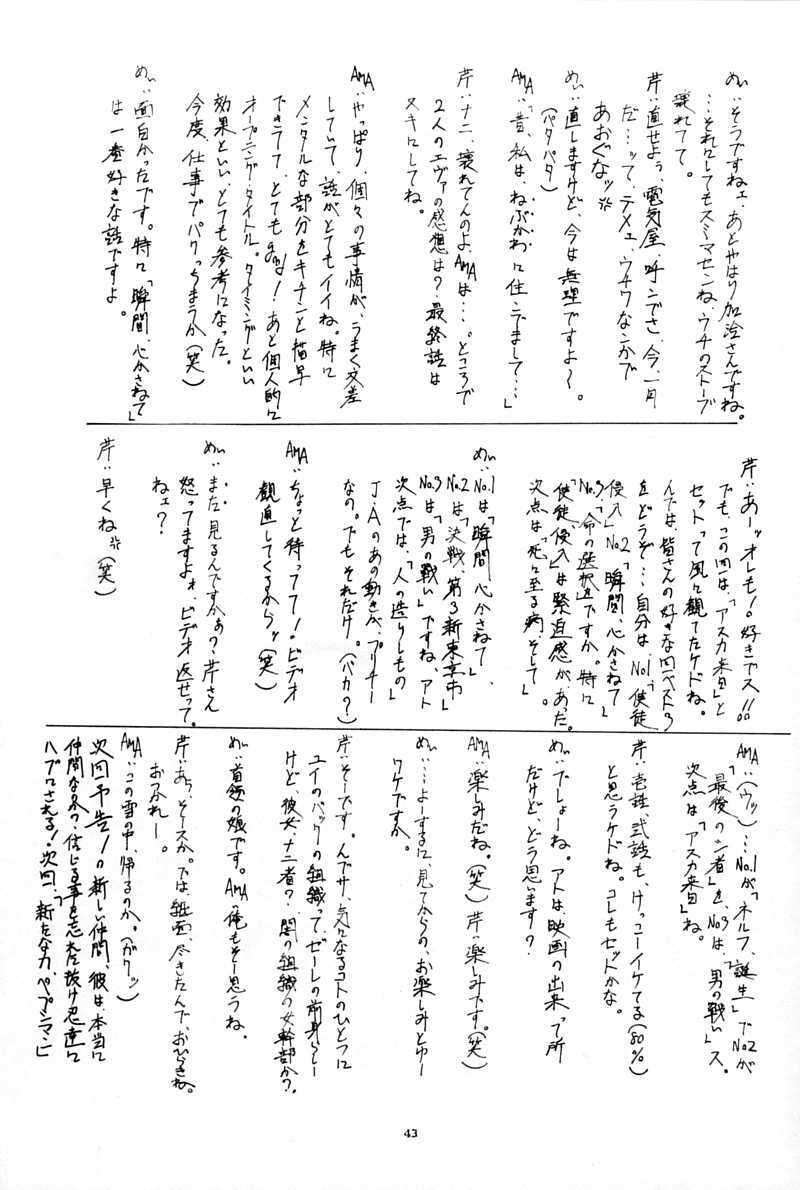 めい:そうですねェ、あとやはり加治さんですね。
…それにしてもスミマセンね、ウチのストーブ
壊れてて。
芹:直せよぅ、電気屋、呼ンでさ、今、一月
だ…ッて、テメェ、ウチワなンかで
あおぐなッ
めい:直しますけど、今は無理ですよ〜。
(パタパタ)
AMA:「昔、私は、ねぶかわに住ンでまして…」
芹:ナニ、壊れてんのよ、AMAは…。ところで
2人のエヴァの感想は?最終話は
ヌキにしてね。
AMA:やっぱり、個々の事情が、うまく交差
していて、話がとてもイイね。特に
メンタルな部分をキチンと描写
できてて、とてもgood!あと個人的に
オープニング・タイトル。タイミングといい
効果といい、とても参考になった。
今度、仕事でパクっちまうか(笑)
めい:面白かったです。特に「瞬間、心かさねて」
は一番好きな話ですよ。
芹:あーッオレも!好きでス!!
でも、この回は、「アスカ来日」と
セットって風に観てたケドね。
んでは、皆さんの好きな回ベスト3
をどうぞ…自分は、No.1「使徒
侵入」No.2「瞬間、心かさねて」
No.3「命の選択を」ですか。特に
「使徒侵入」は緊迫感が、あった。
次点は「死に至る病、そして」
めい:No.1は「瞬間、心かさねて」、
No.2は「決戦、第3新東京市」
No.3は「男の戦い」ですね、アト
次点では、「人の造りしもの」
J・Aのあの動きが、プリチー
なの。でもそれだけ。(バカ?)
AMA:ちょっと待ってて!ビデオ
観直してくるからッ(笑)
めい:まだ見るんですかぁ?芹さん
怒ってますよォ、ビデオ返せって。
ねェ?
芹:早くね(笑)
AMA:(ウッ)…No.1が「ネルフ、誕生」でNo.2が
「最後のシ者」を、No.3は、「男の戦い」ス。
次点は「アスカ来日」ね。
芹:壱話、弐話も、けっこーイケてる(80%)
と思うケドね。コレもセットかな。
めい:でしょーね。アトは、映画の出来って所
だけど、どう思います?
AMA:楽しみだね。(笑)芹:楽しみです。(笑)
めい:…よーするに、見てからの、お楽しみとゆー
ワケですか。
芹:そーです。んでサ、気になるコトのひとつに
ユイのバックの組織って、ゼーレの前身らしー
けど、彼女、ナニ者?闇の組織の女幹部か?
めい:首領の娘です。AMA:俺もそー思うね。
芹:あっ、そースか。では、紙面、尽きたんで、おひらきね。
おつかれー。
AMA:この雪の中、帰るのか。(ガクッ)
次回予告!の新しい仲間、彼は、本当に
仲間なのか、信じる事を忘れた抜け忍達に
ハブにされる!次回、「新たな力、ペプシマン」
43